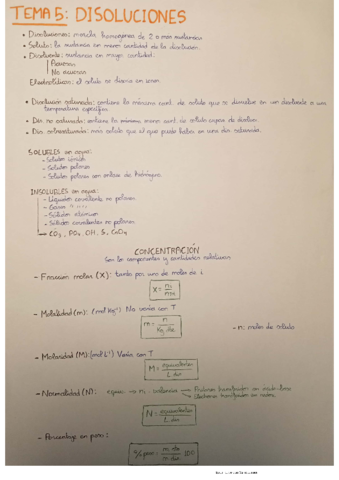 TEMA 5: DISOLUCIONES
• Disoluciones: mezcla homogénea de 2 o más sustancias
• Soluto: la sustancia en menor cantidad de la disolución.
• Disolvente: sustancia en mayor cantidad.
Acuosas
No acuosas
Electrolíticas: el soluto se disocia en iones
• Disolución saturada: contiene la máxima cant. de soluto que se disuelve en un disolvente a una
temperatura específica
• Dis. no saturada: contiene la cant. de soluto capaz de disolver
• Dis. sobresaturada: más soluto que el que puede haber en una dis. saturada.
SOLUBLES en agua:
- Sólidos iónicos
- Sólidos polares
- Sólidos polares con enlaces de hidrógeno
INSOLUBLES en agua:
- Líquidos covalentes no polares
- Gases
- Sólidos atómicos
- Sólidos covalentes no polares
→ CO3, PO4, OH, S, CaO4
CONCENTRACIÓN
Son los componentes y cantidades relativas
- Fracción molar (X): tanto por uno de moles de i.
- Molalidad (m): (mol kg⁻¹) No varía con T
m = n / Kg dte
- n: moles de soluto
- Molaridad (M): (mol L⁻¹) Varía con T
M = / L dis
- Normalidad (N):
N = equivalentes / L dis
- Porcentaje en peso:
% peso = m sto / m dis · 100